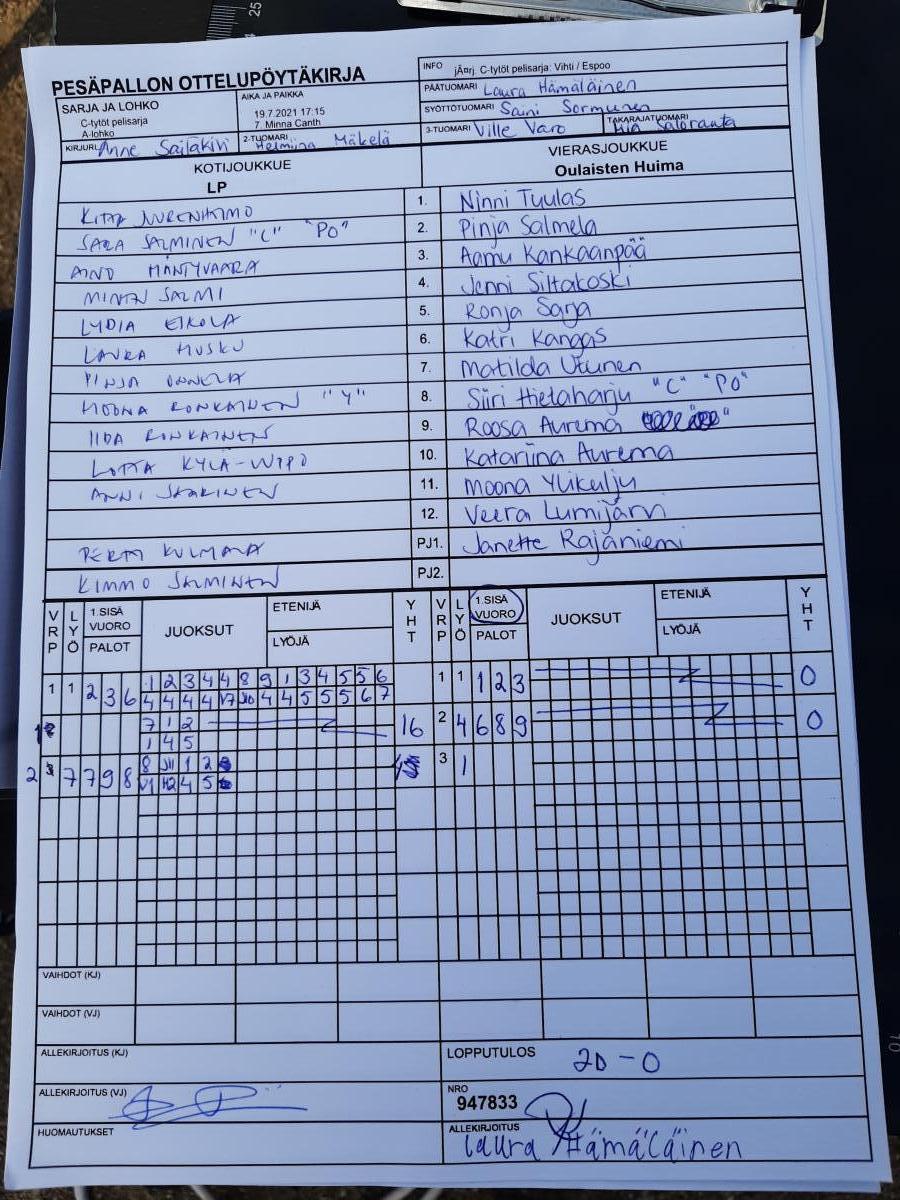 25
PESÄPALLON OTTELUPÖYTÄKIRJA
INFO jÃ¤rj. C-tytöt pelisarja: Vihti / Espoo
PÄÄTUOMARI Laura Hämäläinen
SARJA JA LOHKO
C-tytöt pelisarja
A-lohko
AIKA JA PAIKKA
19.7.2021 17:15
7. Minna Canth
SYÖTTÖTUOMARI Saini Sormunen
KIRJURI Anne Sajakivi 2-TUOMARI Helmiina Mäkelä 3-TUOMARI Ville Varo TAKARAJATUOMARI Saloranta
KOTIJOUKKUE VIERASJOUKKUE
LP Oulaisten Huima
1. Ninni Tuulas
SARA SALMINEN "C" "PO" 2. Pinja Salmela
AINO MÄNTYVAARA 3. Aamu Kankaanpää
SALMI 4. Jenni Siltakoski
LYDIA EIKOLA 5. Ronja Sarja
LAURA HUSKU 6. Katri Kangas
PINJA 7. Matilda Utunen
MOONA RONKAINEN "Y" 8. Siiri Hietaharju "C" "PO"
IIDA RONKAINEN 9. Roosa Aurema
LOTTA KYLÄ-UTPO 10. Katariina Aurema
ANNI 11. Moona Ylikulju
12. Veera Lumijärvi
KULMALA PJ1. Janette Rajaniemi
KIMMO SALMINEN PJ2.
VRP LYÖ 1.SISÄ VUORO PALOT JUOKSUT ETENIJÄ LYÖJÄ YHT VRP LYÖ 1.SISÄ VUORO PALOT JUOKSUT ETENIJÄ LYÖJÄ YHT
1 1 2 3 6 1 2 3 4 4 8 9 1 3 4 5 5 6 1 1 1 2 3 0
4 4 4 4 4 4 5 5 5 6 7
7 1 2 16 2 4 6 8 9 0
1 4 5
2 7 7 9 8 8 11 1 2 3 1
12 4 5
VAIHDOT (KJ)
VAIHDOT (VJ)
ALLEKIRJOITUS (KJ) LOPPUTULOS 20 - 0
ALLEKIRJOITUS (VJ) NRO
947833
HUOMAUTUKSET ALLEKIRJOITUS
Laura Hämäläinen